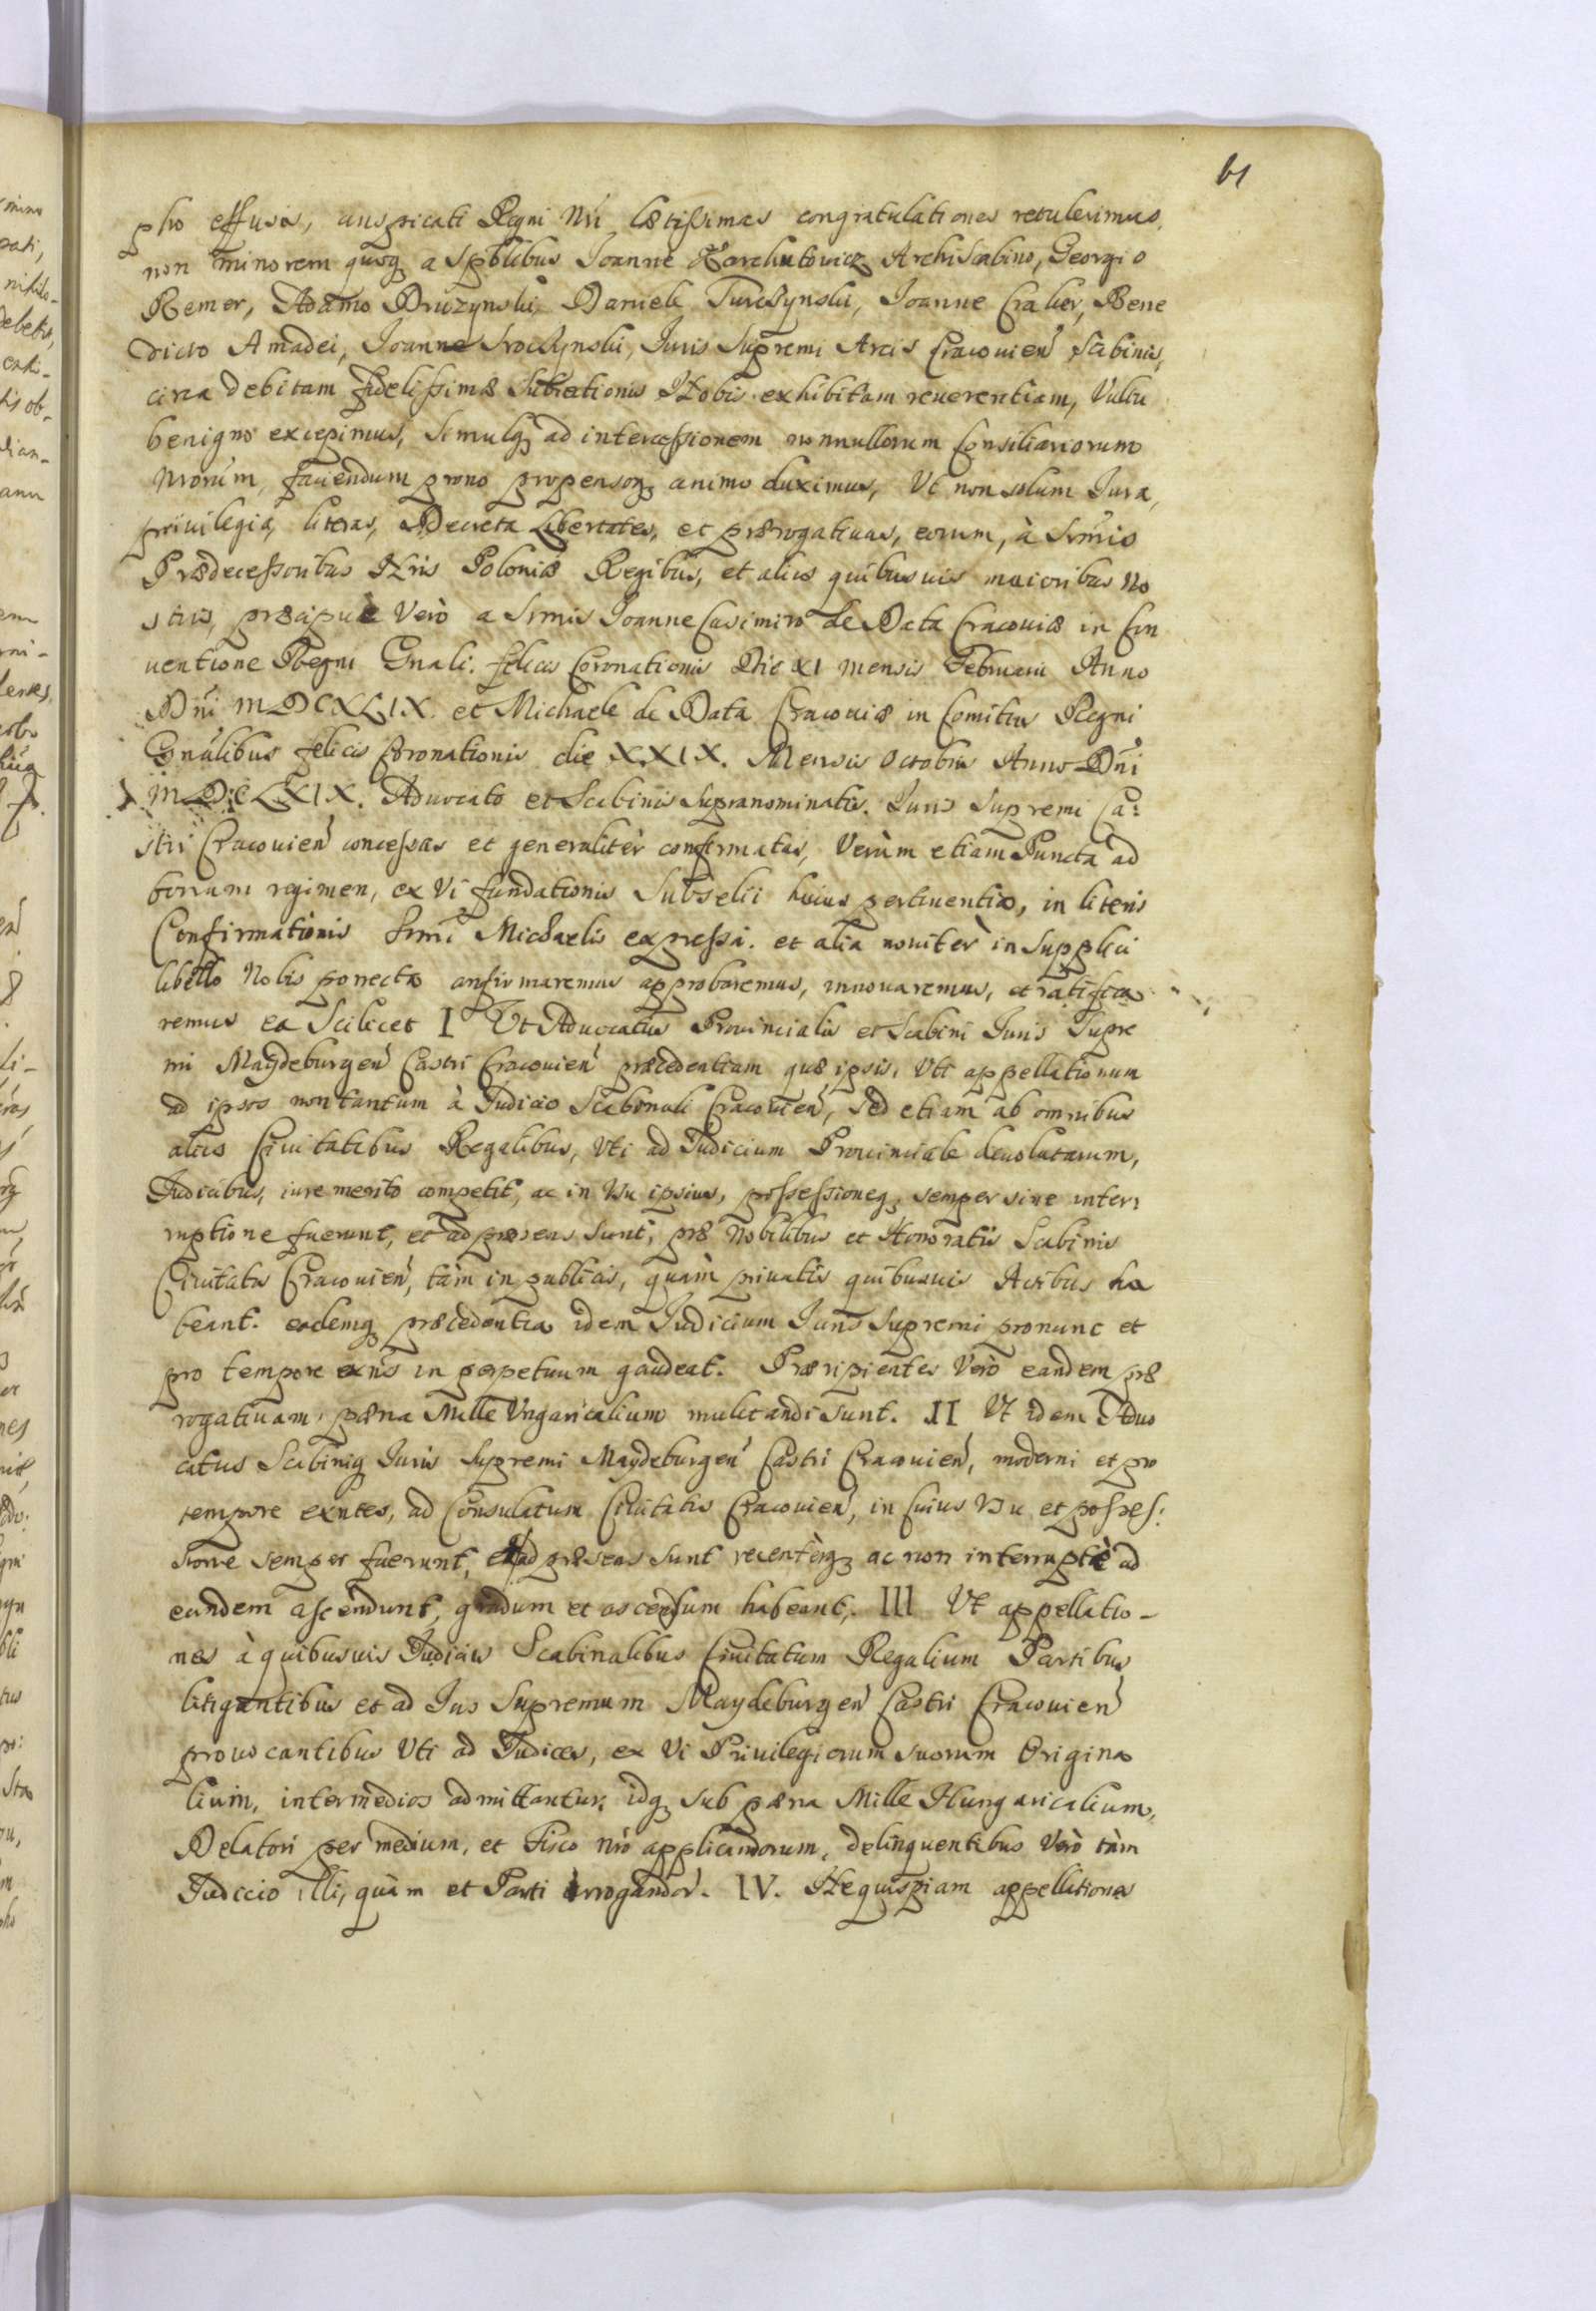 61
pho effusis, auspicati Regni Nri lætissimas congratulationes retulerimus,
non minorem quoq a Spblibus Joanne Archiscabino, Georgio
Remer, Adamo Druzynski, Daniele Turczynski, Joanne Craker, Bene
dicto Amadei, Joanne Juris Supremi Arcis Cracovien Scabinis,
circa debitam fidelissimæ Subiectionis Nobis exhibitam reuerentiam, Vultu
benigno excepimus, Simulq ad intercessionem nonnullorum Consiliariorum
Nrorum, fauendum prono propensoq animo duximus, Vt non solum Jura,
privilegia, literas, Decreta Libertates, et prærogatiuas, eorum, à Srmis
Prædecessoribus Nris Poloniæ Regibus, et aliis quibusuis maioribus No
stris, præcipuè Verò a Srmis Joanne Casimiro de Data Cracouiæ in Con
uentione Regni Gnali. felicis Coronationis Die XI mensis Februarii Anno
Dni MDCXLIX. et Michaele de Data Cracouiæ in Comitiis Regni
Gnalibus felicis Coronationis die XXIX. Mensis Octobris Anno Dni
MDCLXIX. Aduocato et Scabinis Supranominatis. Juris Supremi Ca:
stri Cracouien concessas et generalitèr confirmatas, Verùm etiam Puncta ad
bonum regimen, ex Vi fundationis Subselii huius pertinentia, in literis
Confirmationis Srmi Michaelis expressa. et alia noviter in Supplici
libello Nobis porrecta confirmaremus approbaremus, innouaremus, et ratifica
remus ea Scilicet I Vt Aduocatus Prouincialis et Scabini Juris Supre
mi Maydeburgen Castri Cracouien præcedentiam quæ ipsis, Vti appellationum
ad ipsos non tantum à Judicio Scabinali Cracouien, sed etiam ab omnibus
aliis Ciuitatibus Regalibus, Vti ad Judicium Prouinciale deuolutarum,
Judicibus, iure merito competit, ac in Vsu ipsius, possessioneq, semper sine inter
ruptione fuerunt, et ad præsens sunt, præ Nobilibus et Honoratis Scabinis
Ciuitatis Cracouien, tàm in publicis, quàm priuatis quibusuis Actibus ha
beant. eademq præcedentia idem Judicium Juris Supremi pro nunc et
pro tempore exns in perpetuum gaudeat. Præripientes Verò eandem præ
rogatiuam, pæna Mille Vngaricalium mulctandi sunt. II Vt idem Aduo
catus Scabiniq Juris Supremi Maydeburgen Castri Cracouien, moderni et pro
tempore exntes, ad Consulatum Ciuitatis Cracouien, in Cuius Vsu et posses:
sione semper fuerunt, et ad præsens sunt recentèrq ac non interruptè ad
eundem ascendunt, gradum et ascensum habeant. III Vt appellatio-
nes à quibusuis Judiciis Scabinalibus Ciuitatum Regalium Partibus
litigantibus et ad Jus Supremum Maydeburgen Castri Cracouien
prouocantibus Vti ad Judices, ex Vi Priuilegiorum suorum Origina
lium, intermedios admittantur, idq sub pæna Mille Hungaricalium,
Delatori per medium, et Fisco Nro applicandorum, delinquentibus Verò tàm
Judicio illi, quàm et Parti irrogandor. IV. Ne quispiam appellationes